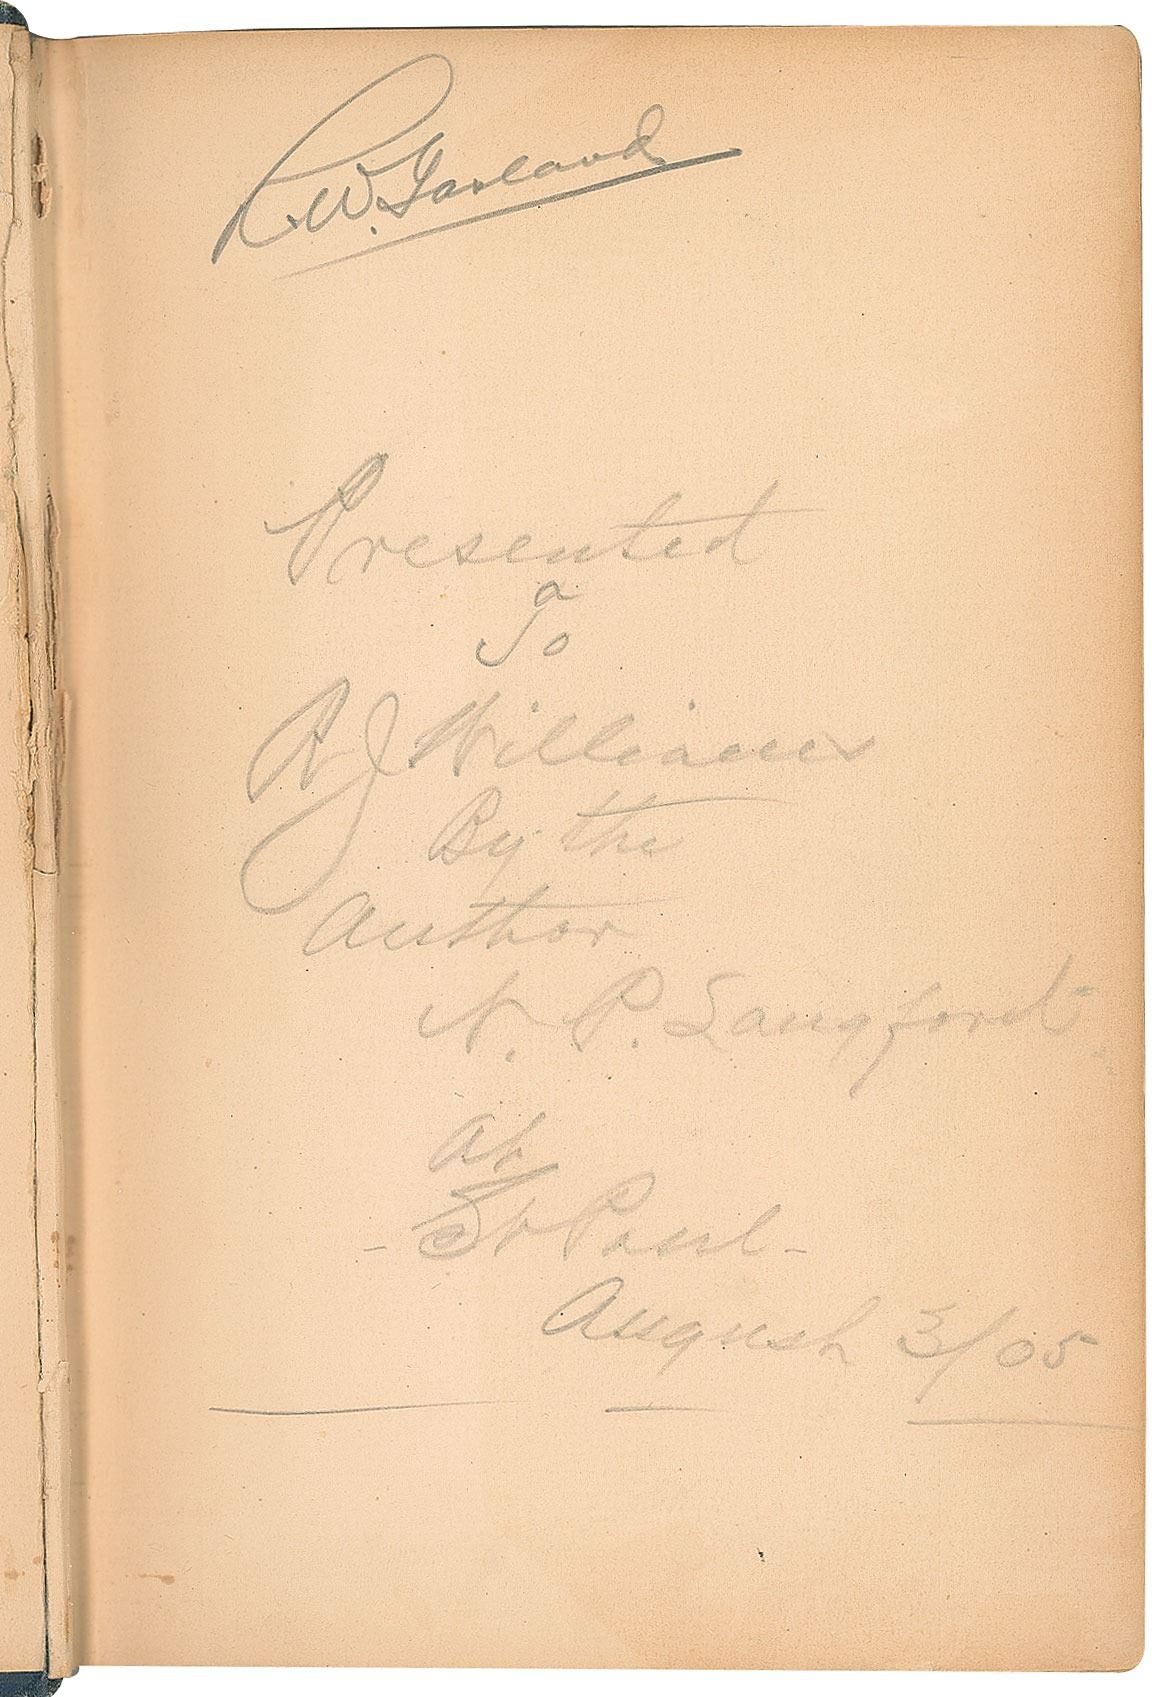 R.W. Garland
Presented
a
To
R J Williams
By the
Author
N. P. Langford
At
- St Paul -
August 3/05